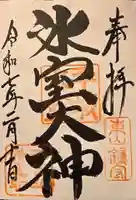 奉拝
氷室大神
令和七年二月十日